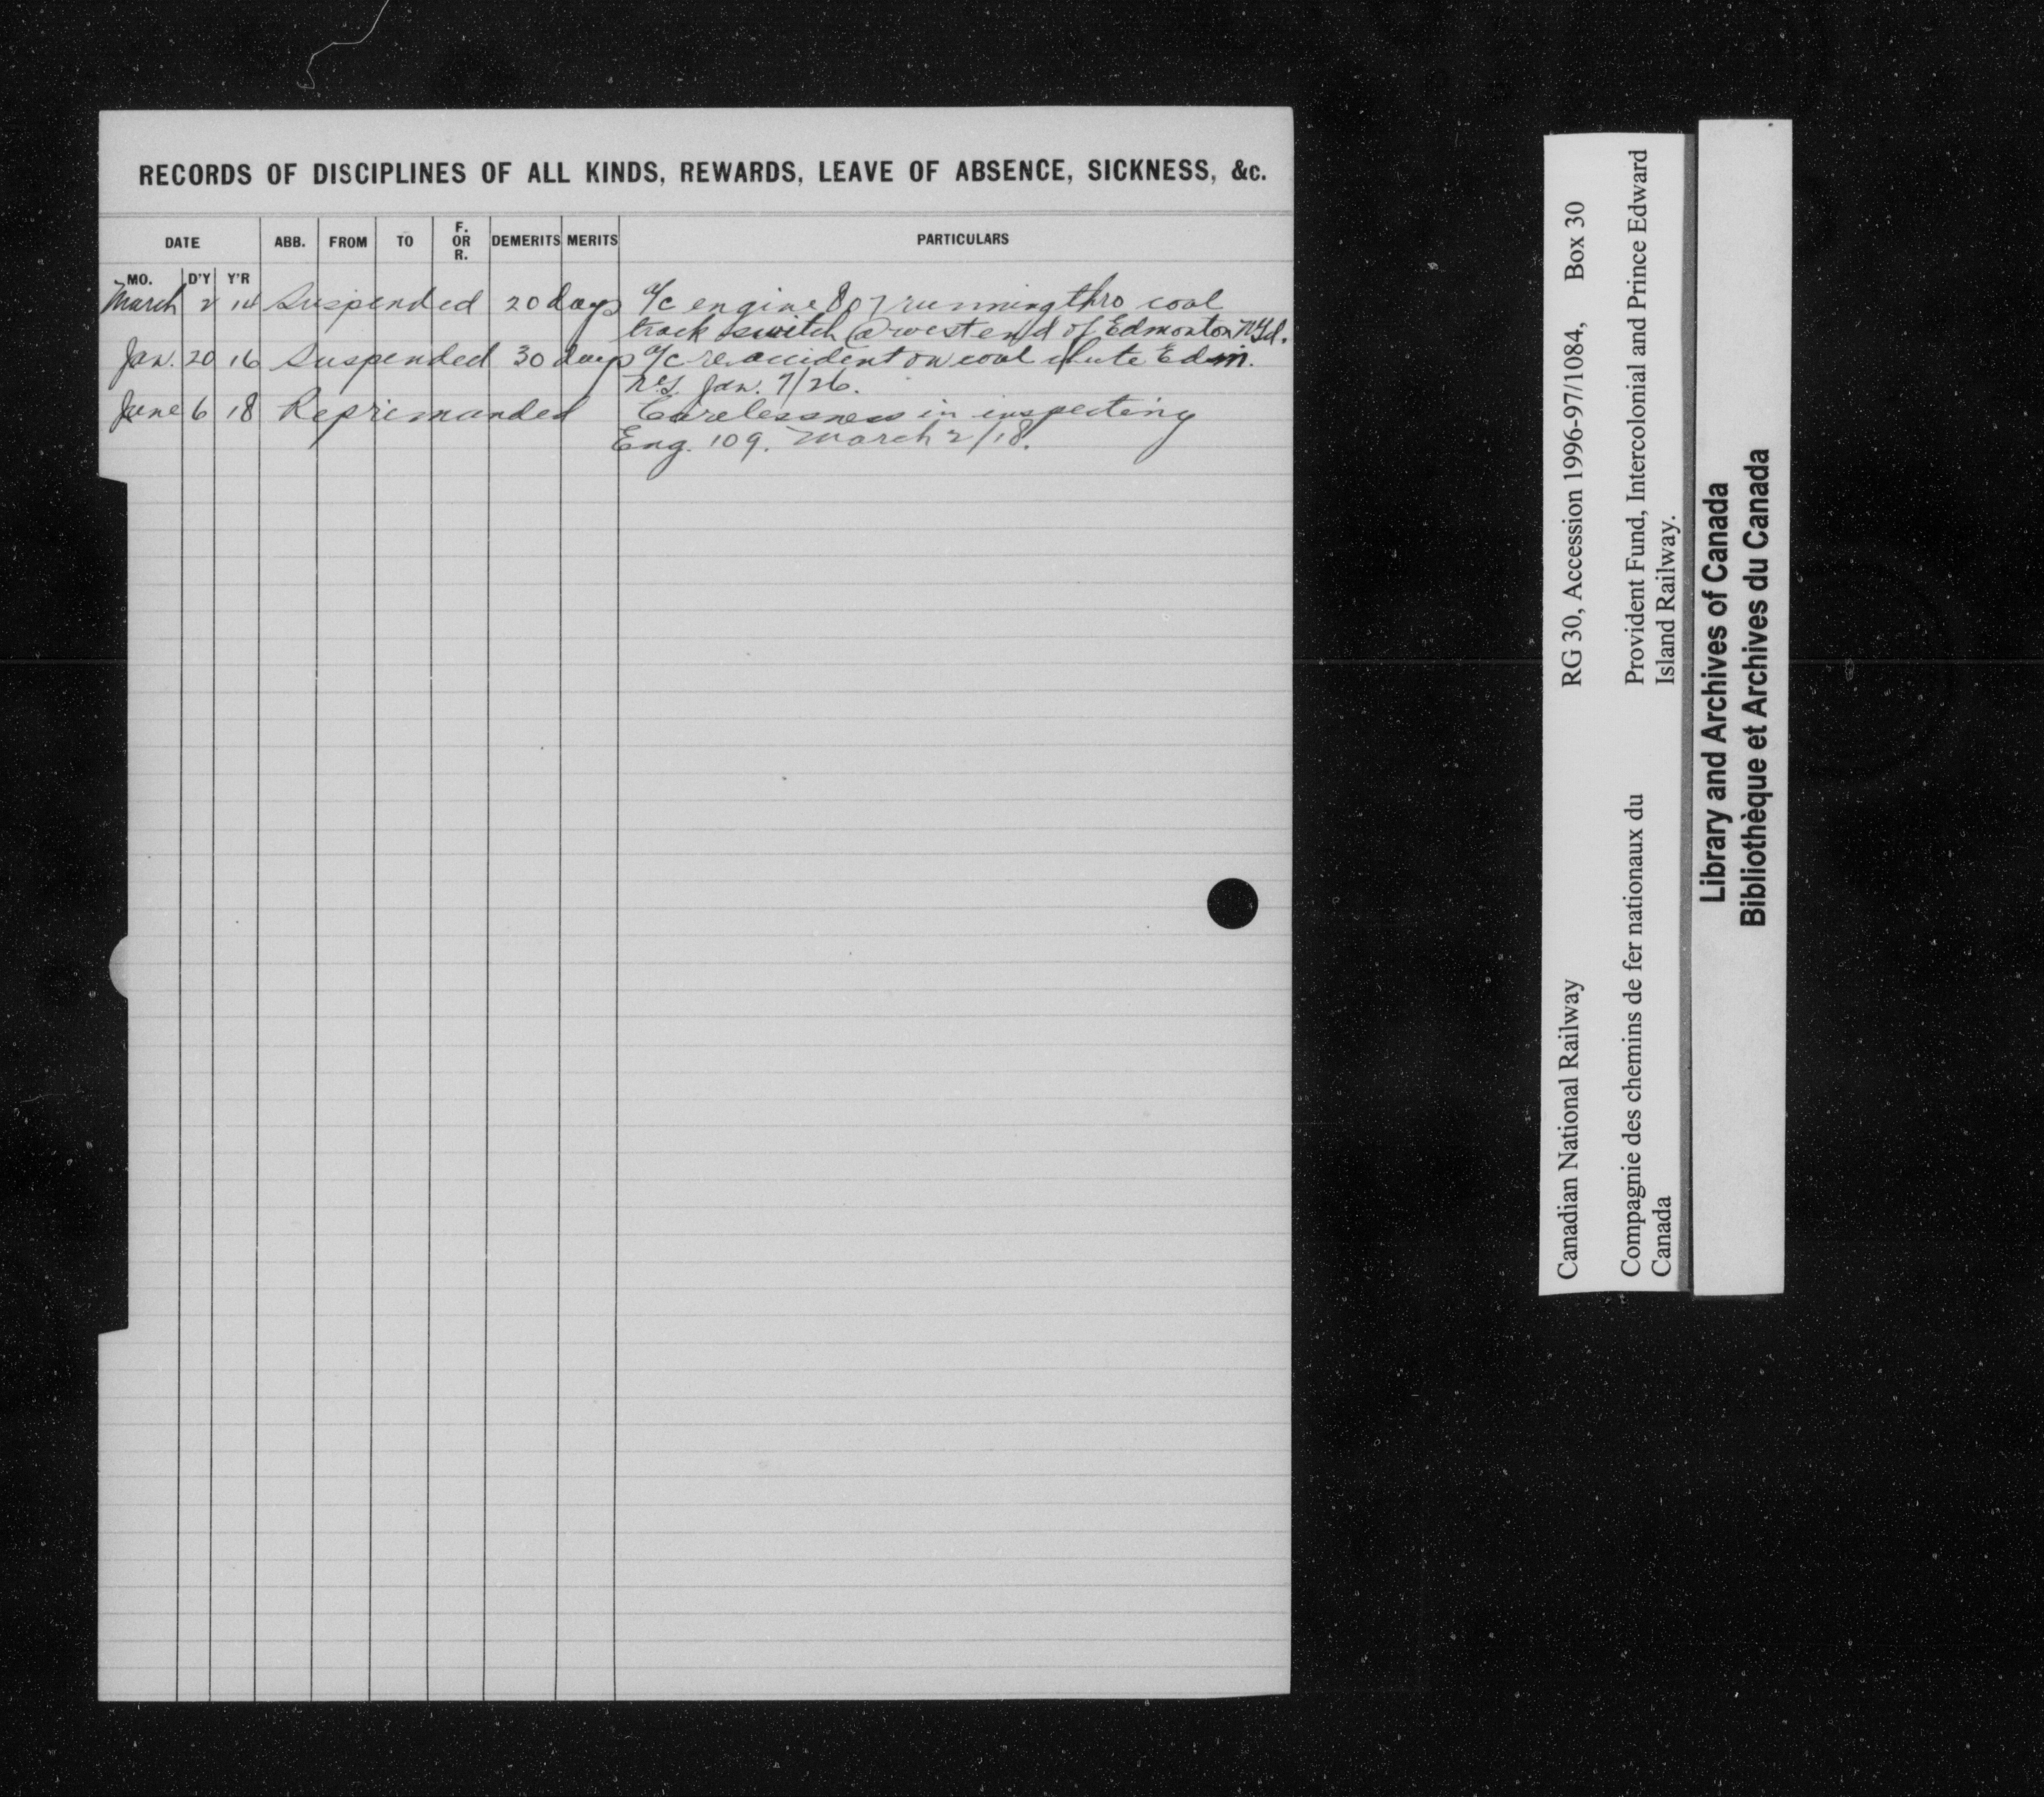 RECORDS OF DISCIPLINES OF ALL KINDS, REWARDS, LEAVE OF ABSENCE, SICKNESS, &c.
DATE ABB. FROM TO F. OR R. DEMERITS MERITS PARTICULARS
MO. D'Y Y'R
March 2 14 Suspended 20 days a/c engine 807 running thro coal
track switch @ west end of Edmonton Yd.
Jan. 20 16 Suspended 30 days a/c re accident on coal chute Edm.
Jan. 7/26.
June 6 18 Reprimanded Carelessness in inspecting
Eng. 109. March 2/18.
RG 30, Accession 1996-97/1084, Box 30
Provident Fund, Intercolonial and Prince Edward
Island Railway.
Canadian National Railway
Compagnie des chemins de fer nationaux du
Canada
Library and Archives of Canada
Bibliothèque et Archives du Canada